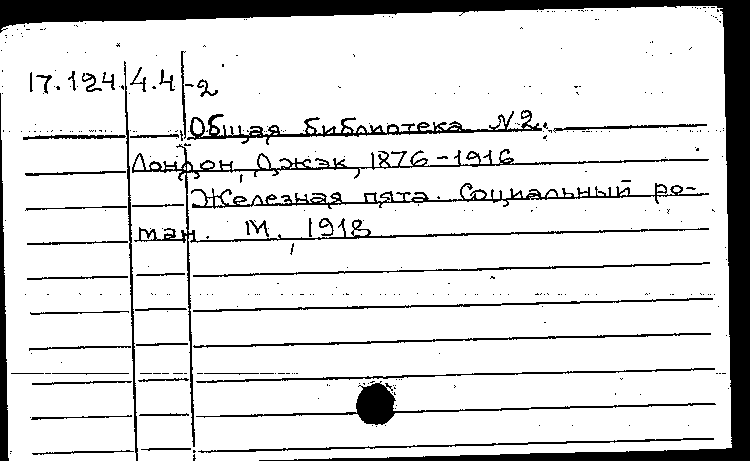 17.124.4.4-2
Общая библиотека №2.
Лондон, Джэк, 1876-1916
Железная пята. Социальный ро-
ман. М., 1918